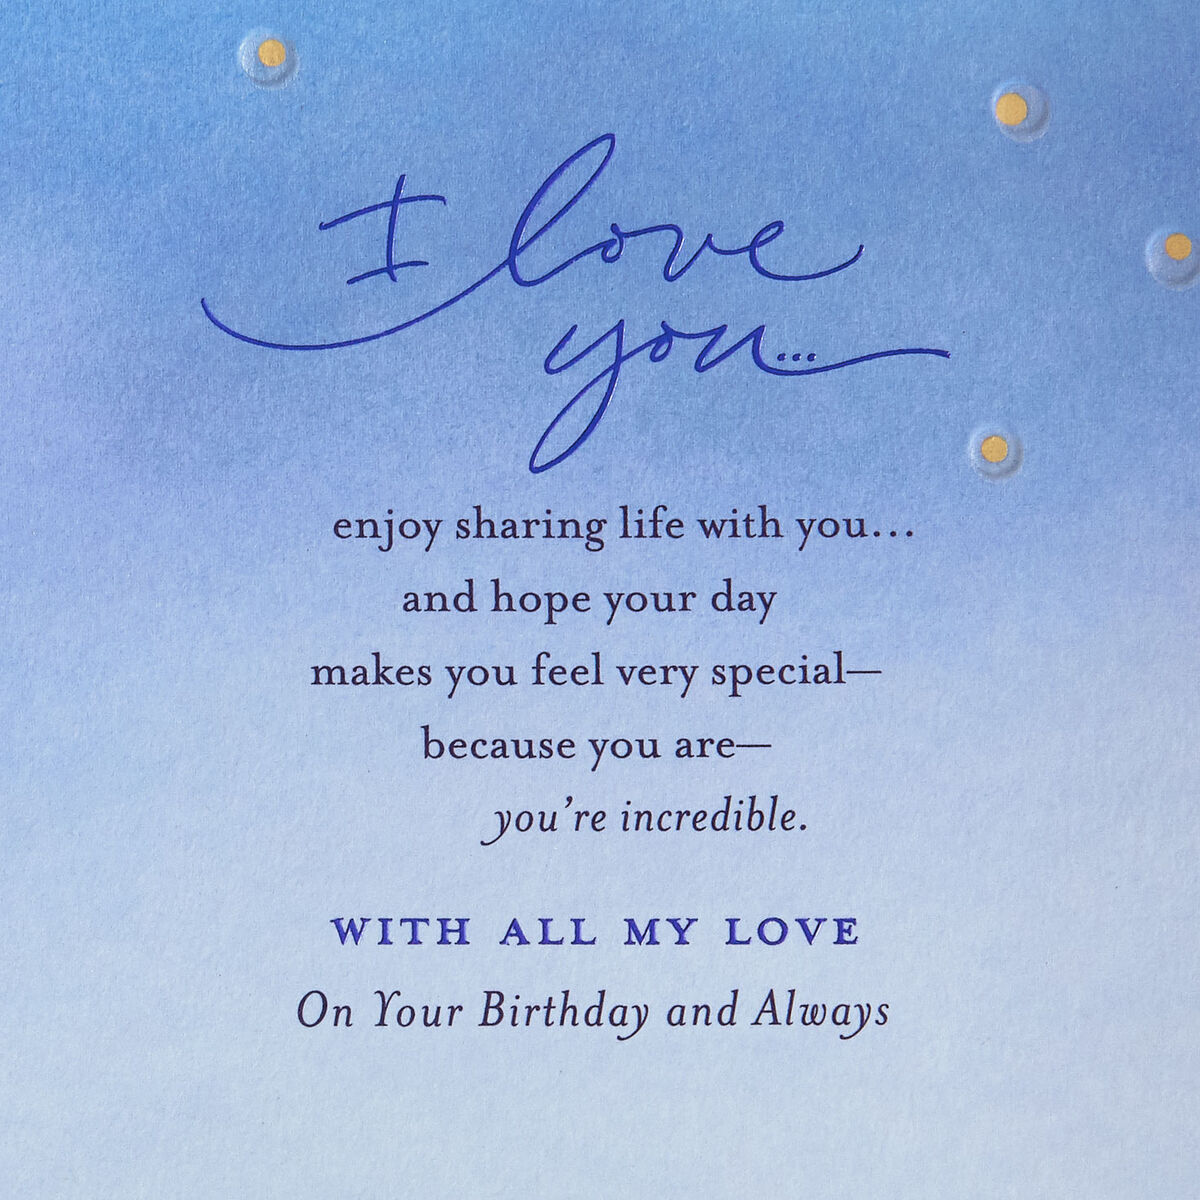 I love
you...
enjoy sharing life with you...
and hope your day
makes you feel very special—
because you are—
you're incredible.
WITH ALL MY LOVE
On Your Birthday and Always